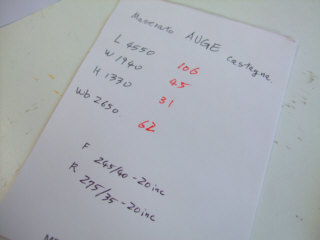 Maserato AUGE castagna.
L 4550 106
W 1940 45
H 1330 31
Wb 2650 62
F 245/40-20inc
R 275/35-20inc